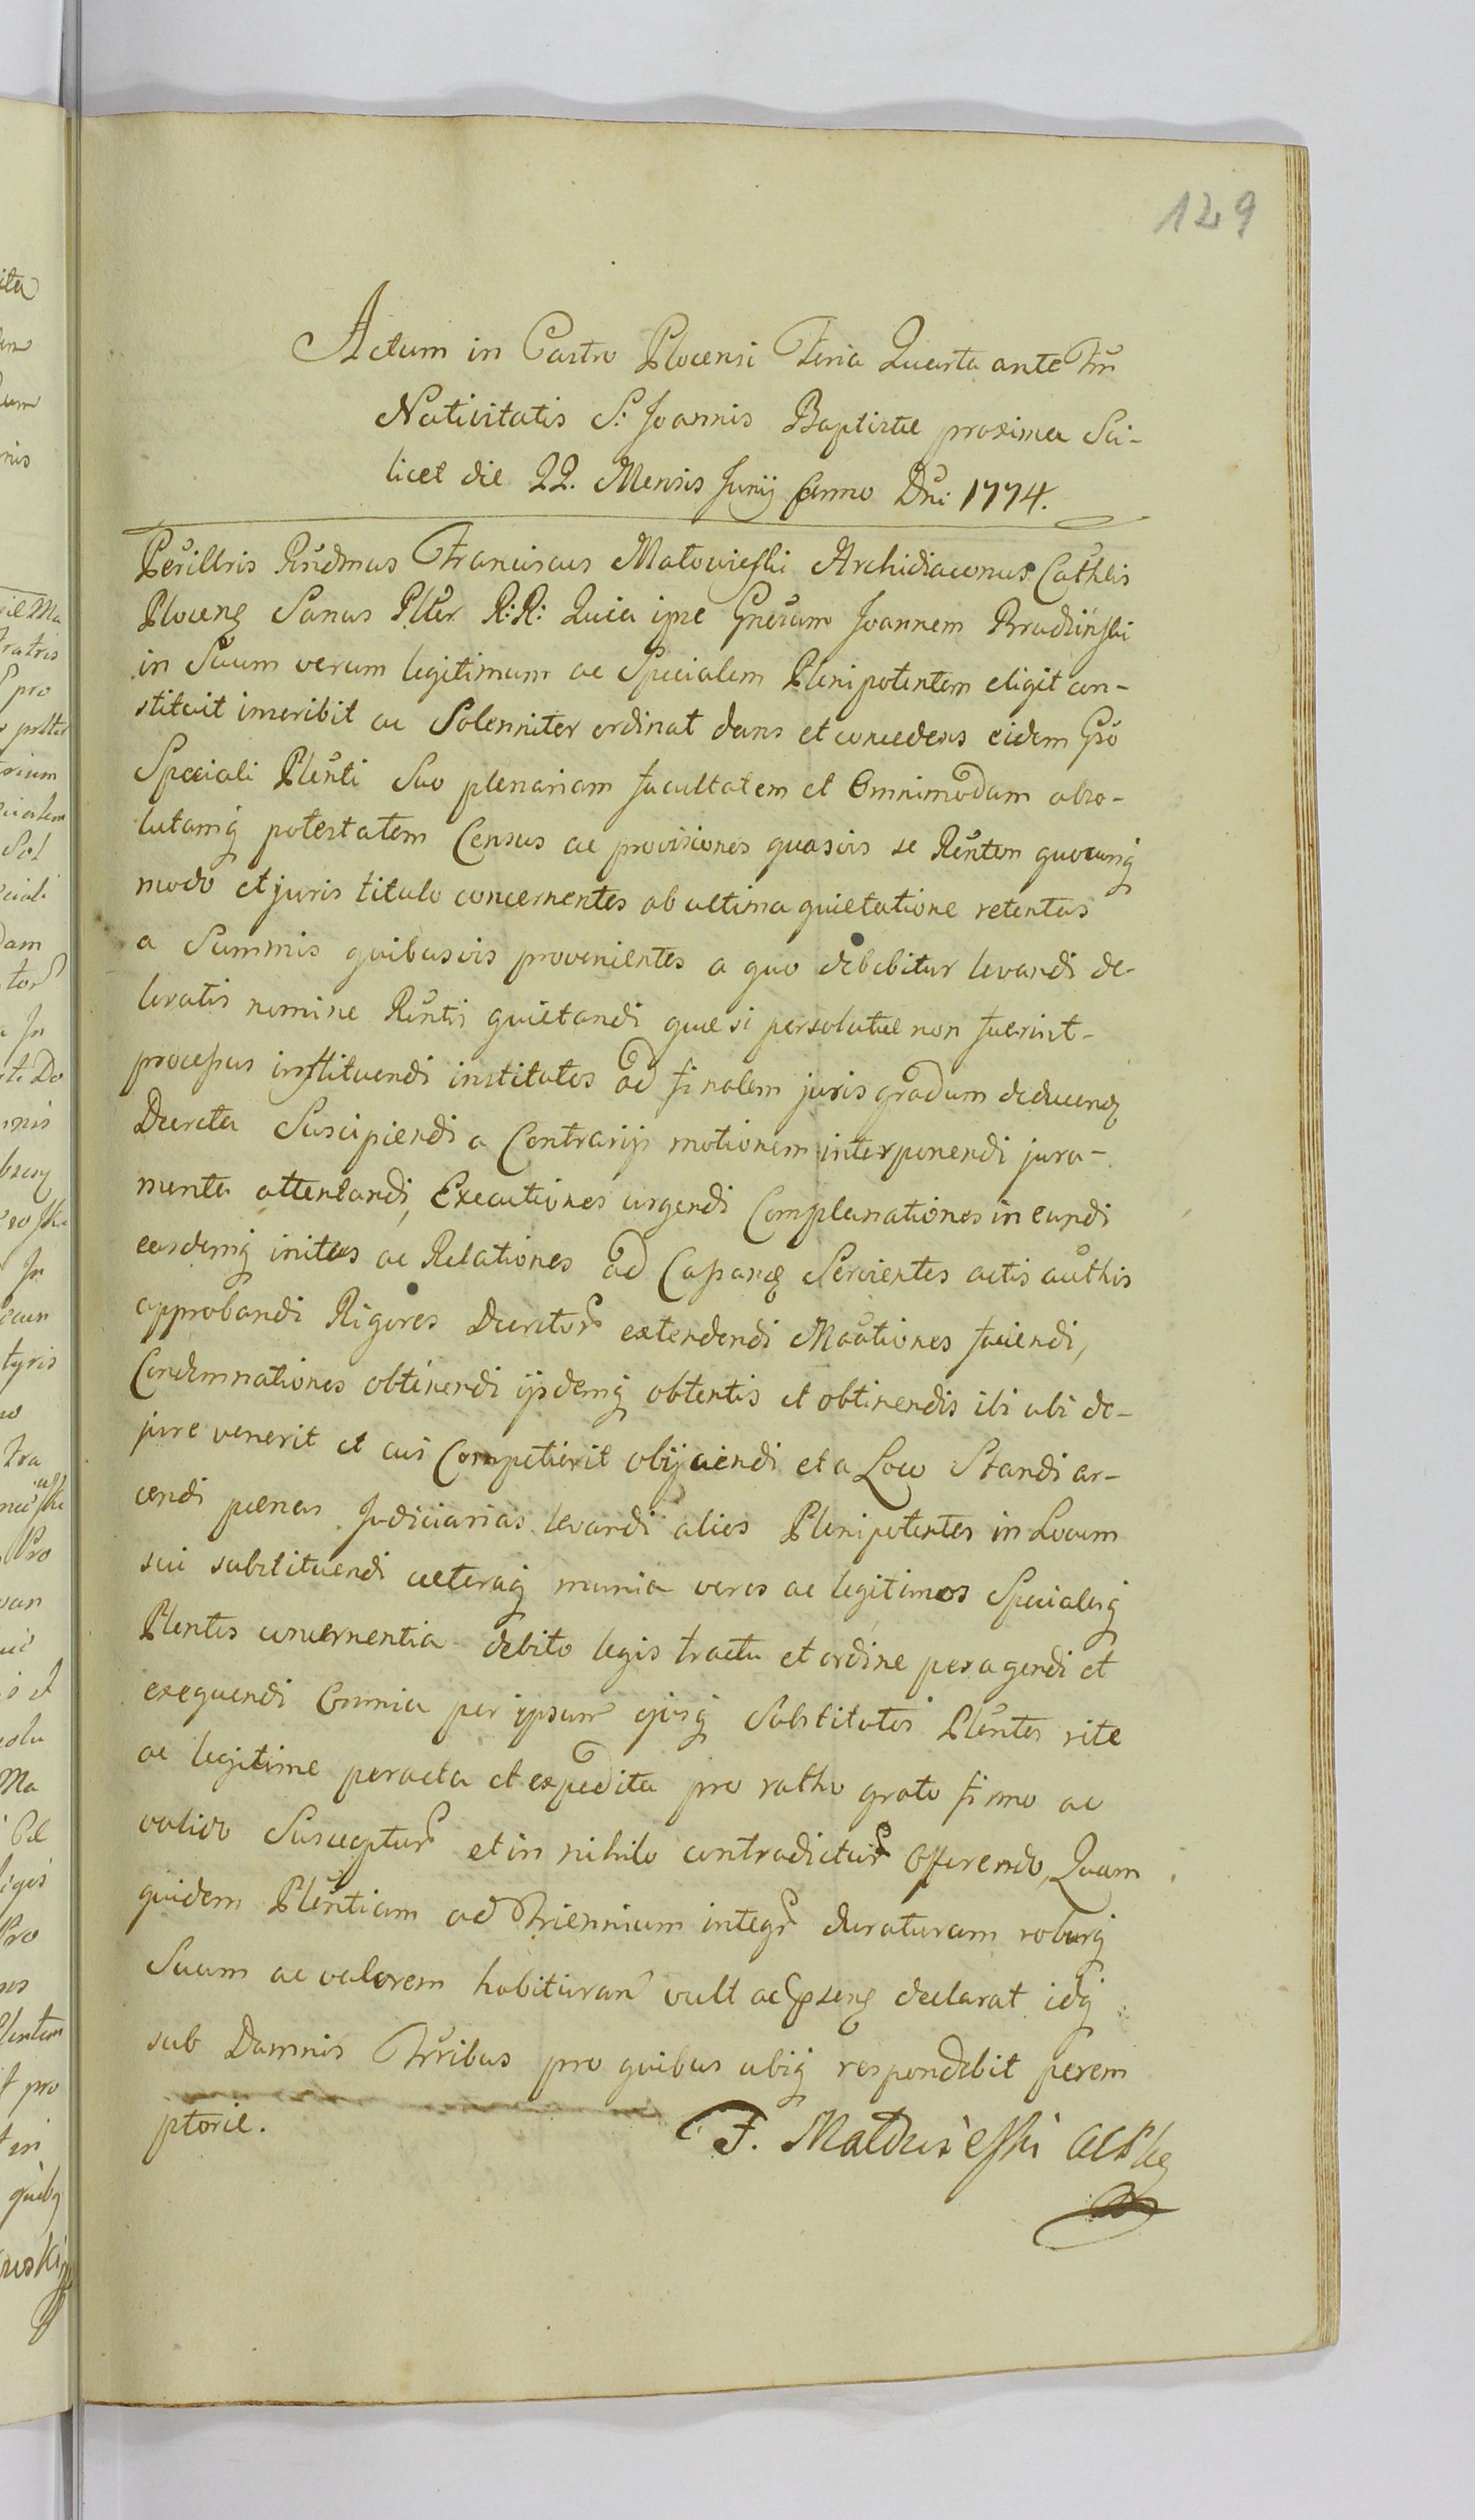 129
Actum in Castro Plocensi Feria Quarta ante Ftū
Nativitatis S: Joannis Baptistæ proxima Sci-
licet die 22. Mensis Junij Anno Dni 1774.
Perillris Rndmus Franciscus Matowieski Archidiaconus Cathlis
Plocens Sanus Pltter R:R: Quia ipse Gnerum Joannem
in Suum verum legitimum ac Specialem Plenipotentem eligit con-
stituit inscribit ac Solenniter ordinat dans et concedens eidem Gso
Speciali Plenti Suo plenariam facultatem et Omnimodam abso-
lutamq potestatem Census ac provisiones quasvis se Rentem quocunq
modo et juris titulo concernentes ab ultima quietatione retentas
a Summis quibusvis provenientes a quo debebitur levandi de
levatis nomine Rentis quietandi quæ si persolutæ non fuerint
processus instituendi institutos ad finalem juris gradum deducend
Decreta Suscipiendi a Contrarijs motionem interponendi jura-
menta attentandi, Executiones urgendi Complanationes in eundi
easdemq initas ac Relationes ad Cassand Servientes actis authis
approbandi Rigores Decretor extendendi Mōtiones faciendi,
Condemnationes obtinendi ijsdemq obtentis et obtinendis ibi ubi de-
jure venerit et cui Competierit obijciendi et a Loco Standi ar-
cendi pænas Judiciarias levandi alios Plenipotentes in Locum
sui substituendi cæteraq munia veros ac legitimos Specialesq
Plentes concernentia debito legis tractu et ordine peragendi et
exequendi Omnia per ipsum ejusq Substitutos Plentes rite
ac legitime peracta et expedita pro ratho grato firmo ac
valido Susceptur et in nihilo contradictur Offerendo, Quam
quidem Plentiam ad Triennium integr duraturam roburq
Suum ac valorem habituram vult ac pntq declarat idq
sub Damnis Trribus pro quibus ubiq respondebit perem
ptorie.
F. Matowieski